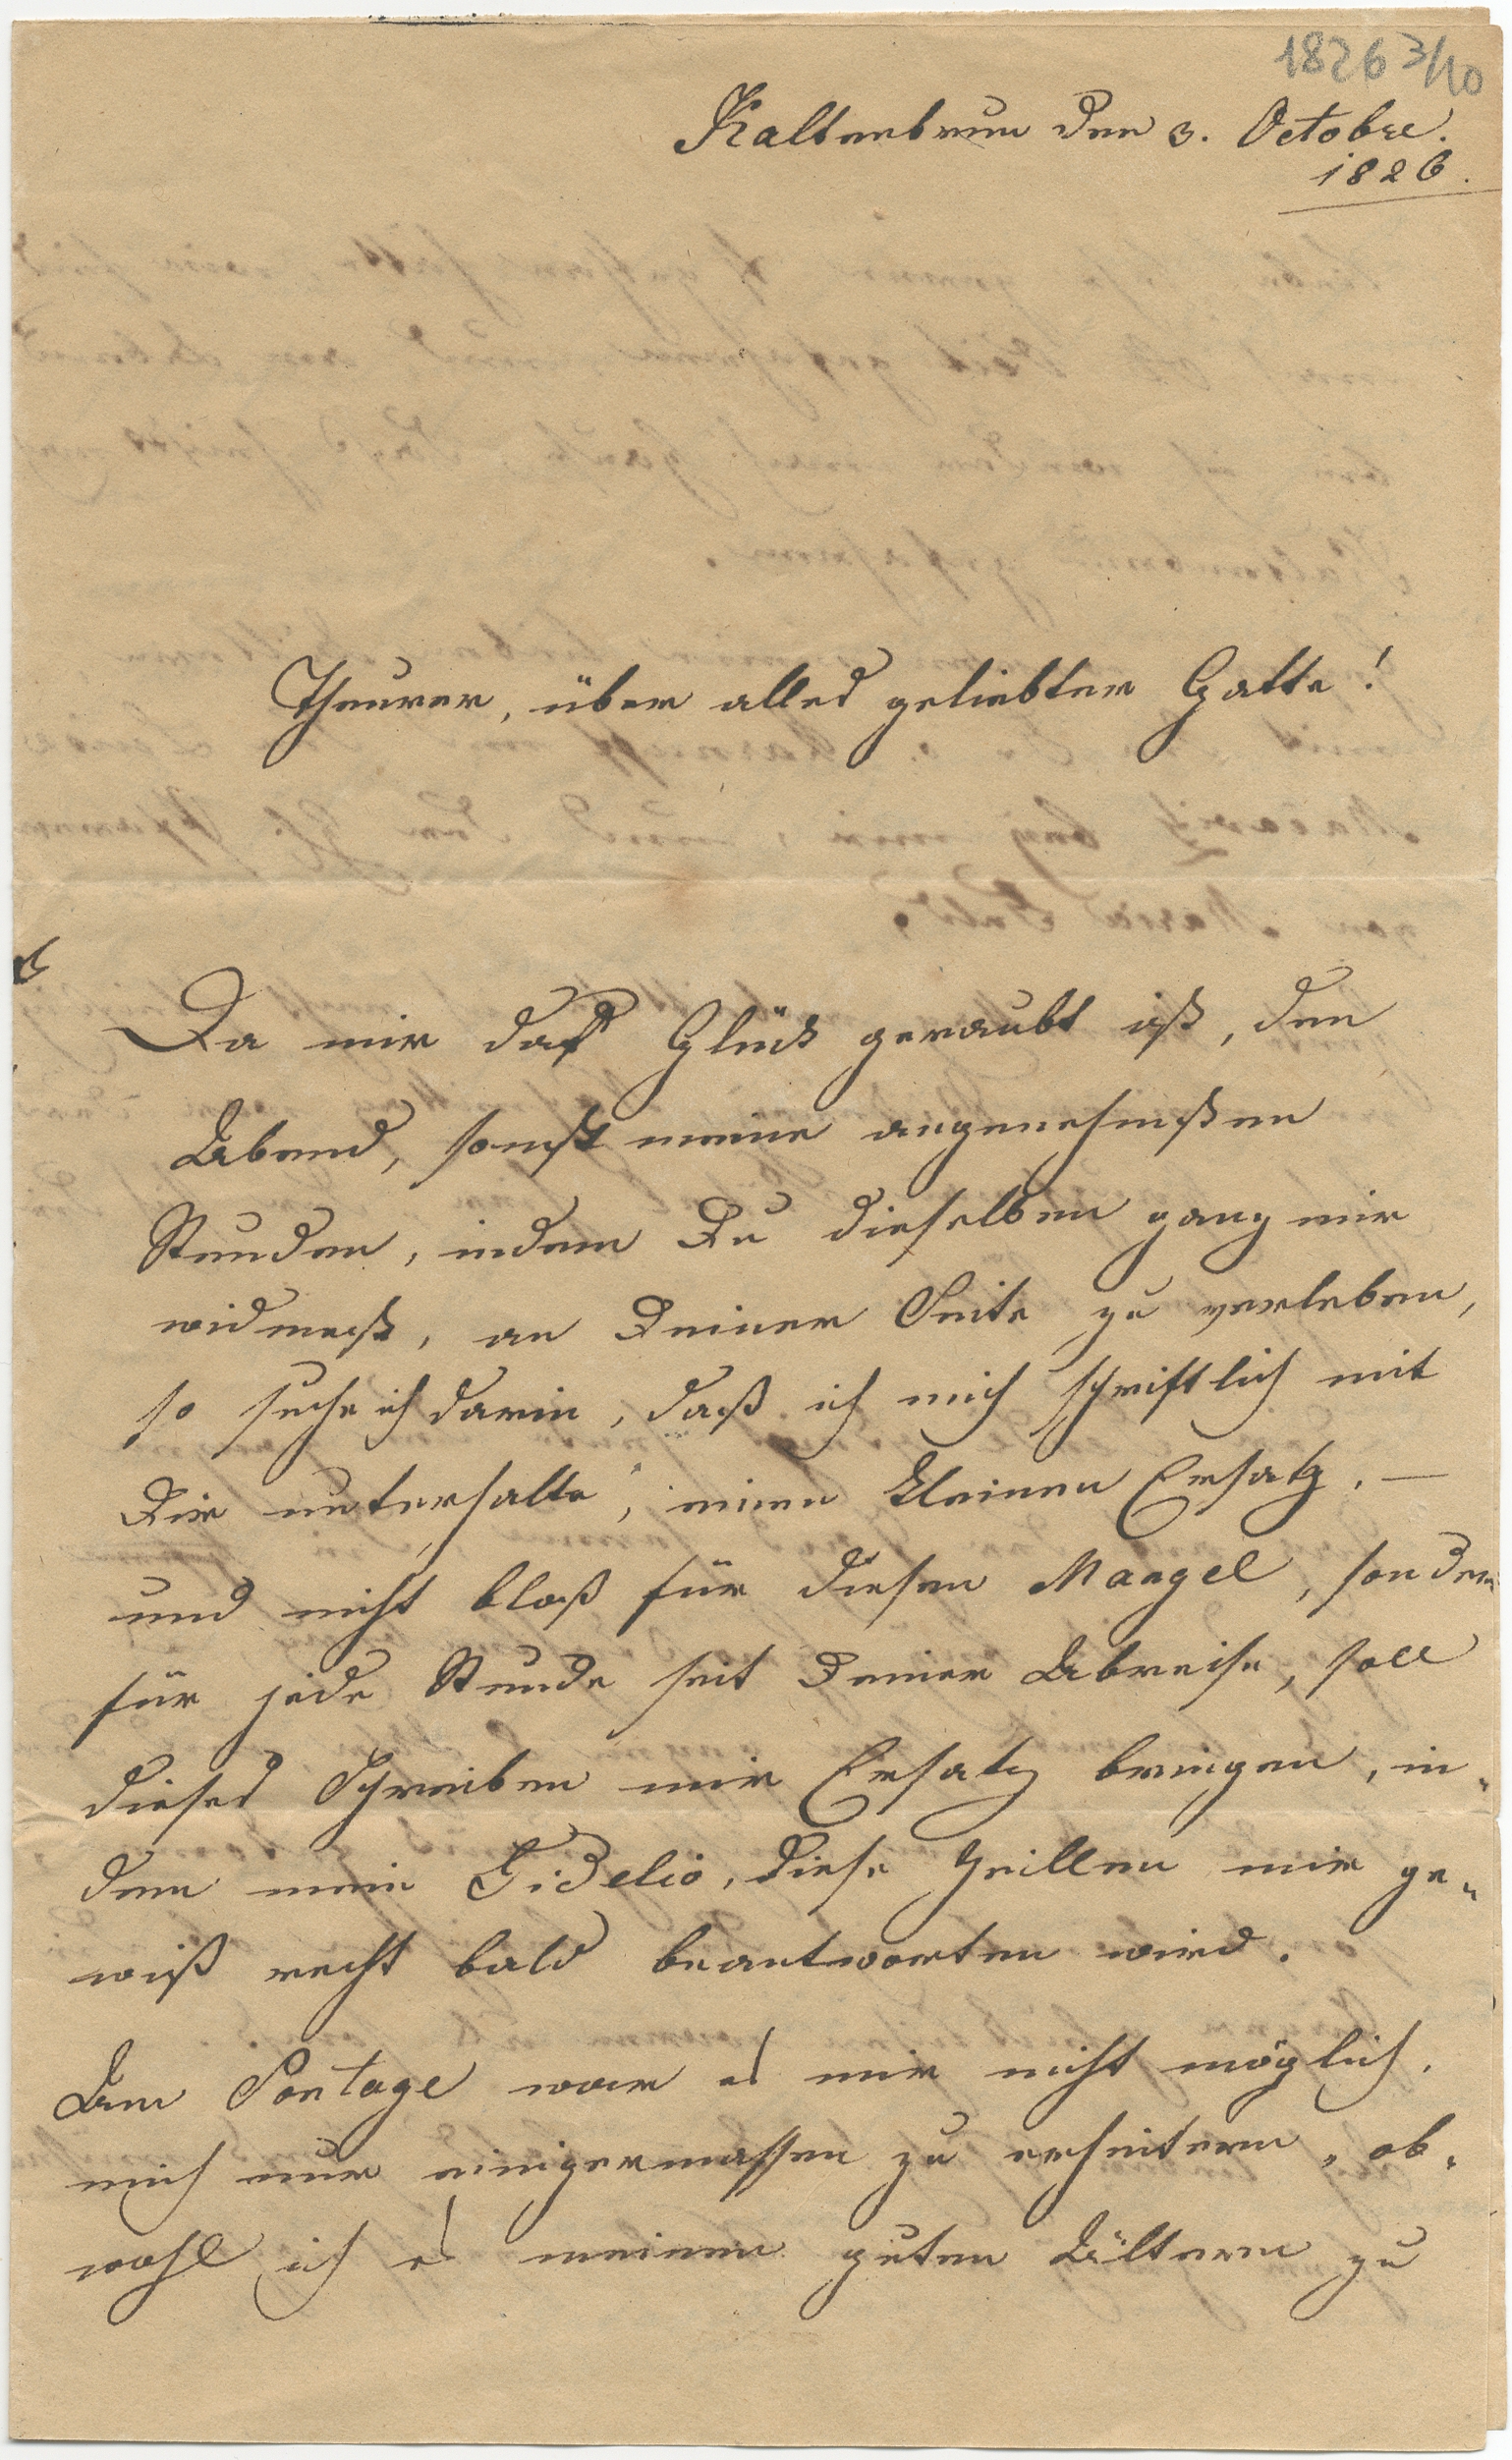 1826 3/10
Kaltenbrun den 3. Octobre.
1826.
Theurer, über alles geliebter Gatte!
Da mir daß Glück geraubt ist, den
Abend, sonst meine angenehmsten
Stunden, indem Du dieselben ganz mir
widmest, an Deiner Seite zu verleben,
so suche ich darin, daß ich mich schriftlich mit
Dir unterhalte, einen kleinen Ersatz. —
und nicht bloß für diesen Mangel, sondern
für jede Stunde seit Deiner Abreise, soll
dieses Schreiben mir Ersatz bringen, in-
dem mein Fidelio, diese Zeillen mir ge-
wiß recht bald beantworten wird.
Am Sontage war es mir nicht möglich.
mich nur einigermassen zu erheitern, ob-
wohl ich es meinen guten Ältern zu